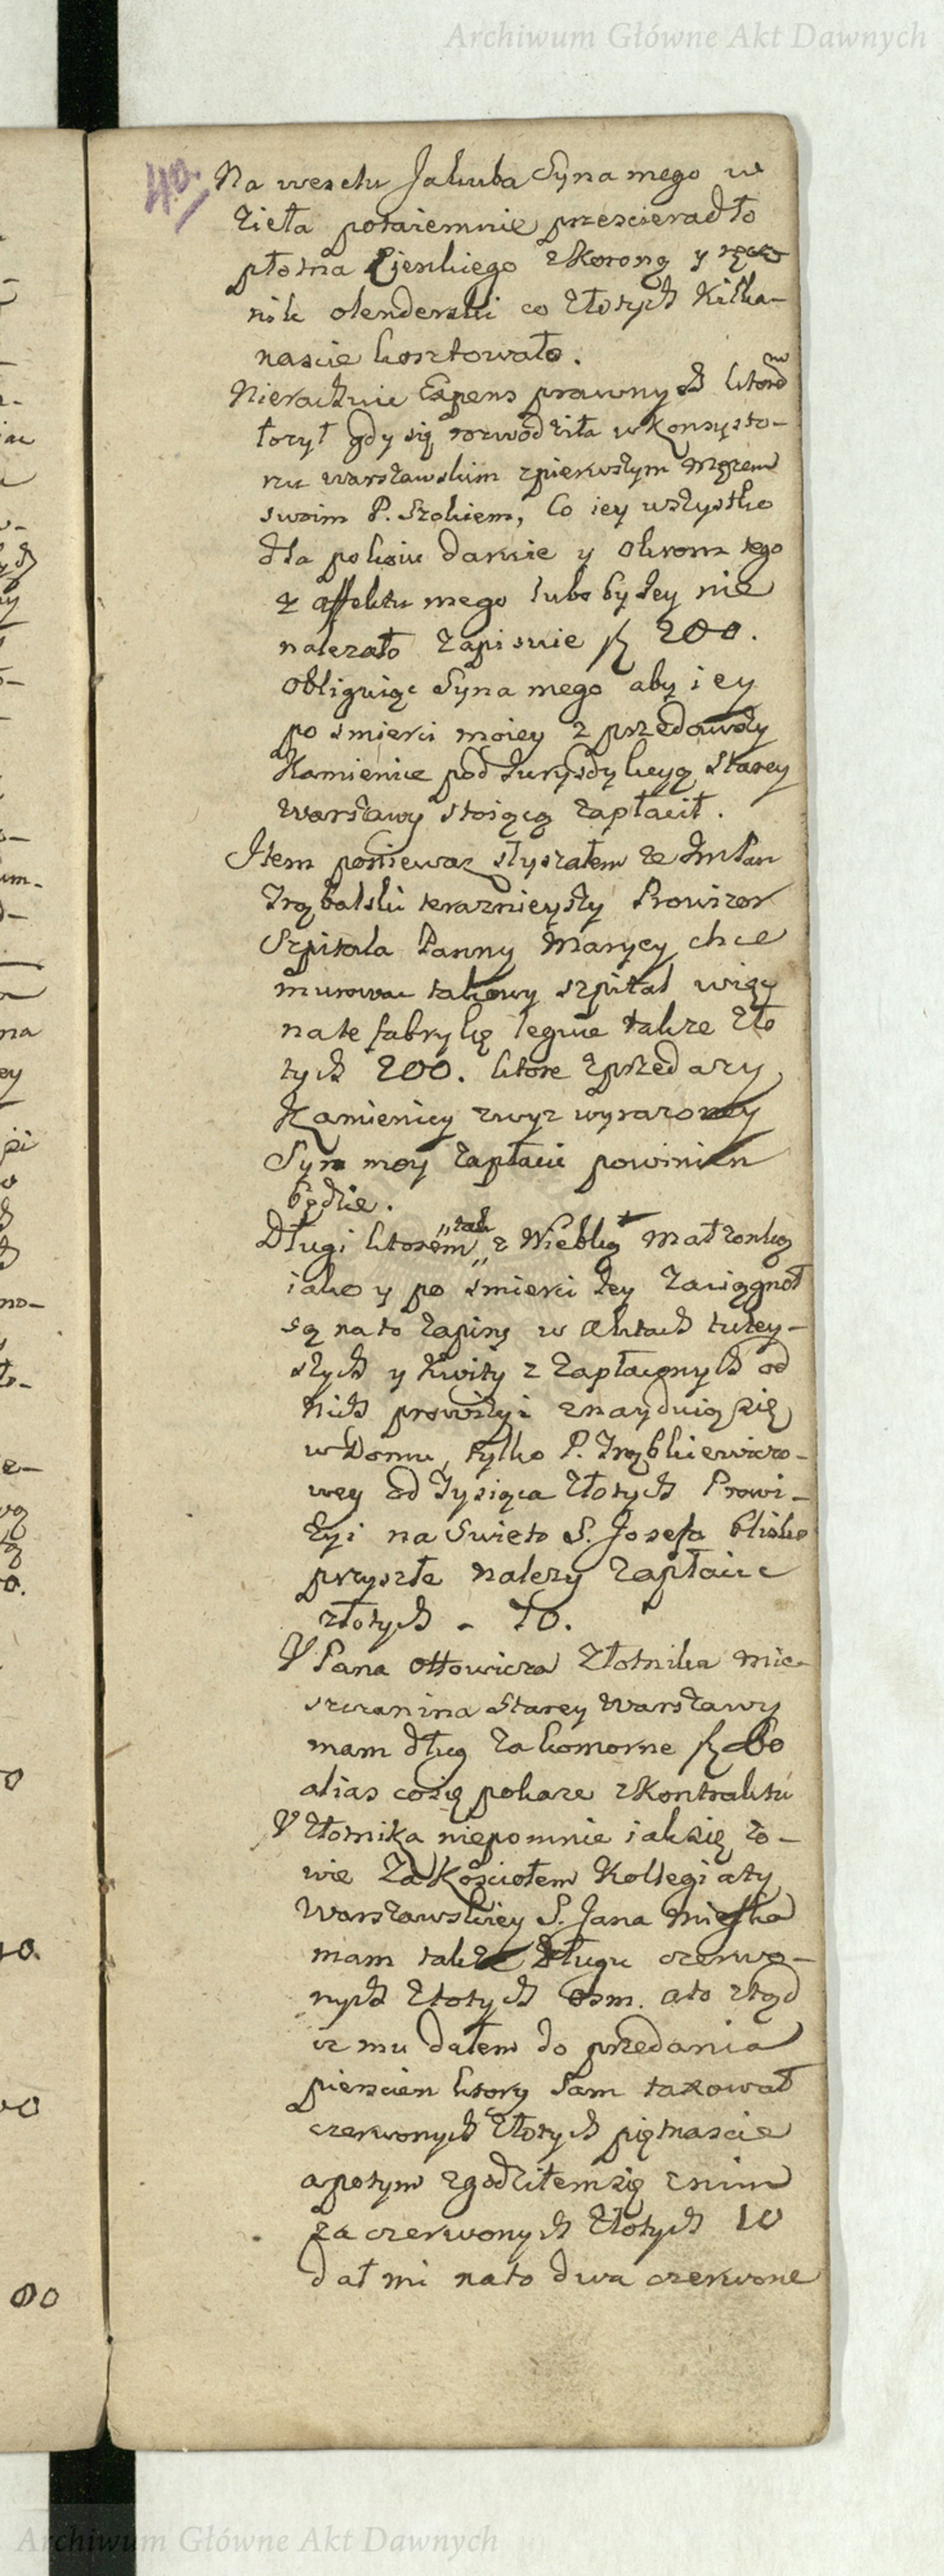 Archiwum Główne Akt Dawnych
40.
Na weselu Jakuba Syna mego w
zieła potaiemnie przescieradło
płotna Ejenskiego z Koroną y ręcz
nik olenderski co złotych Kilka-
nascie kosztowało.
Nierachuie Expens prawnych ktorem
łozył gdy się rozwodziła w Konsysto-
rzu warszawskim z pierwszym Męzem
swoim P. Szokiem, Co iey wszystko
dla pokoiu daruie y okrom tego
z affektu mego lubo by Jey nie
nalezało zapisuie fl 200.
obliguiąc Syna mego aby iey
po smierci moiey z przedawszy
Kamienice pod Jurysdykcyą Starey
Warszawy stoiącą zapłacił.
Item poniewaz słyszałem ze JmPan
Trąbalski terazniejszy Prowizor
Szpitala Panny Maryey chce
murowac takowy szpital więc
na te fabrykę leguie takze zło
tych 200. ktore z przedazy
Kamienicy zwyz wyrazoney
Syn moy zapłacic powinien
będzie.
Długi ktorem „tak„ z Niebką Małzonką
iako y po smierci Jey zaciągnoł
są na to zapisy w Aktach tutey-
szych y kwity z zapłaconych od
nich prowizyi znayduią się
w Domu, tylko P. Trąbkiewiczo-
wey od Tysiąca złotych Prowi-
zyi na Swieto S. Josefa blisko
przyszłe nalezy zapłacic
złotych - 70.
V Pana Ottowicza złotnika mie-
szczanina Starey Warszawy
mam dług za komorne fl 60
alias co się pokaze z Kontraktu
V złotnika niepomnie iak się zo-
wie za Kosciołem Kollegiaty
Warszawskiey S. Jana Mieszka
mam takze długu czerwo-
nych złotych osm. ato ztąd
iz mu dałem do przedania
pierscien ktory sam taxował
czerwonych złotych piętnascie
a potym zgodziłem się z nim
za czerwonych złotych 10
dał mi na to dwa czerwone
Archiwum Główne Akt Dawnych